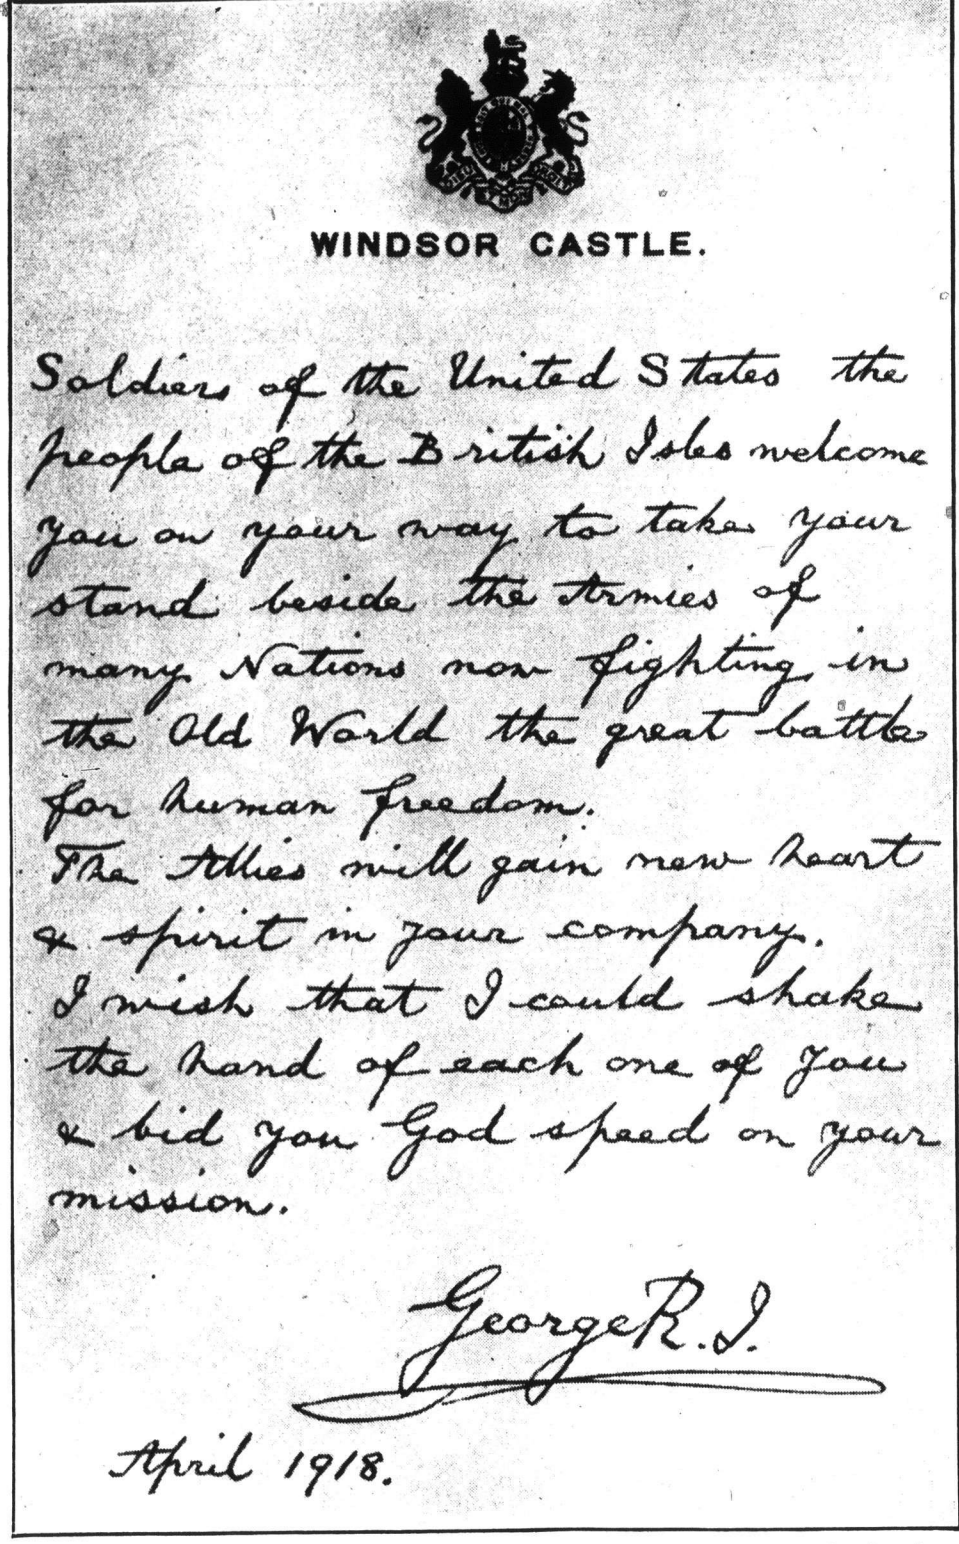 WINDSOR CASTLE.
Soldiers of the United States the
people of the British Isles welcome
you on your way to take your
stand beside the Armies of
many Nations now fighting in
the Old World the great battle
for human freedom.
The Allies will gain new heart
& spirit in your company.
I wish that I could shake
the hand of each one of you
& bid you God speed on your
mission.
George R.I.
April 1918.